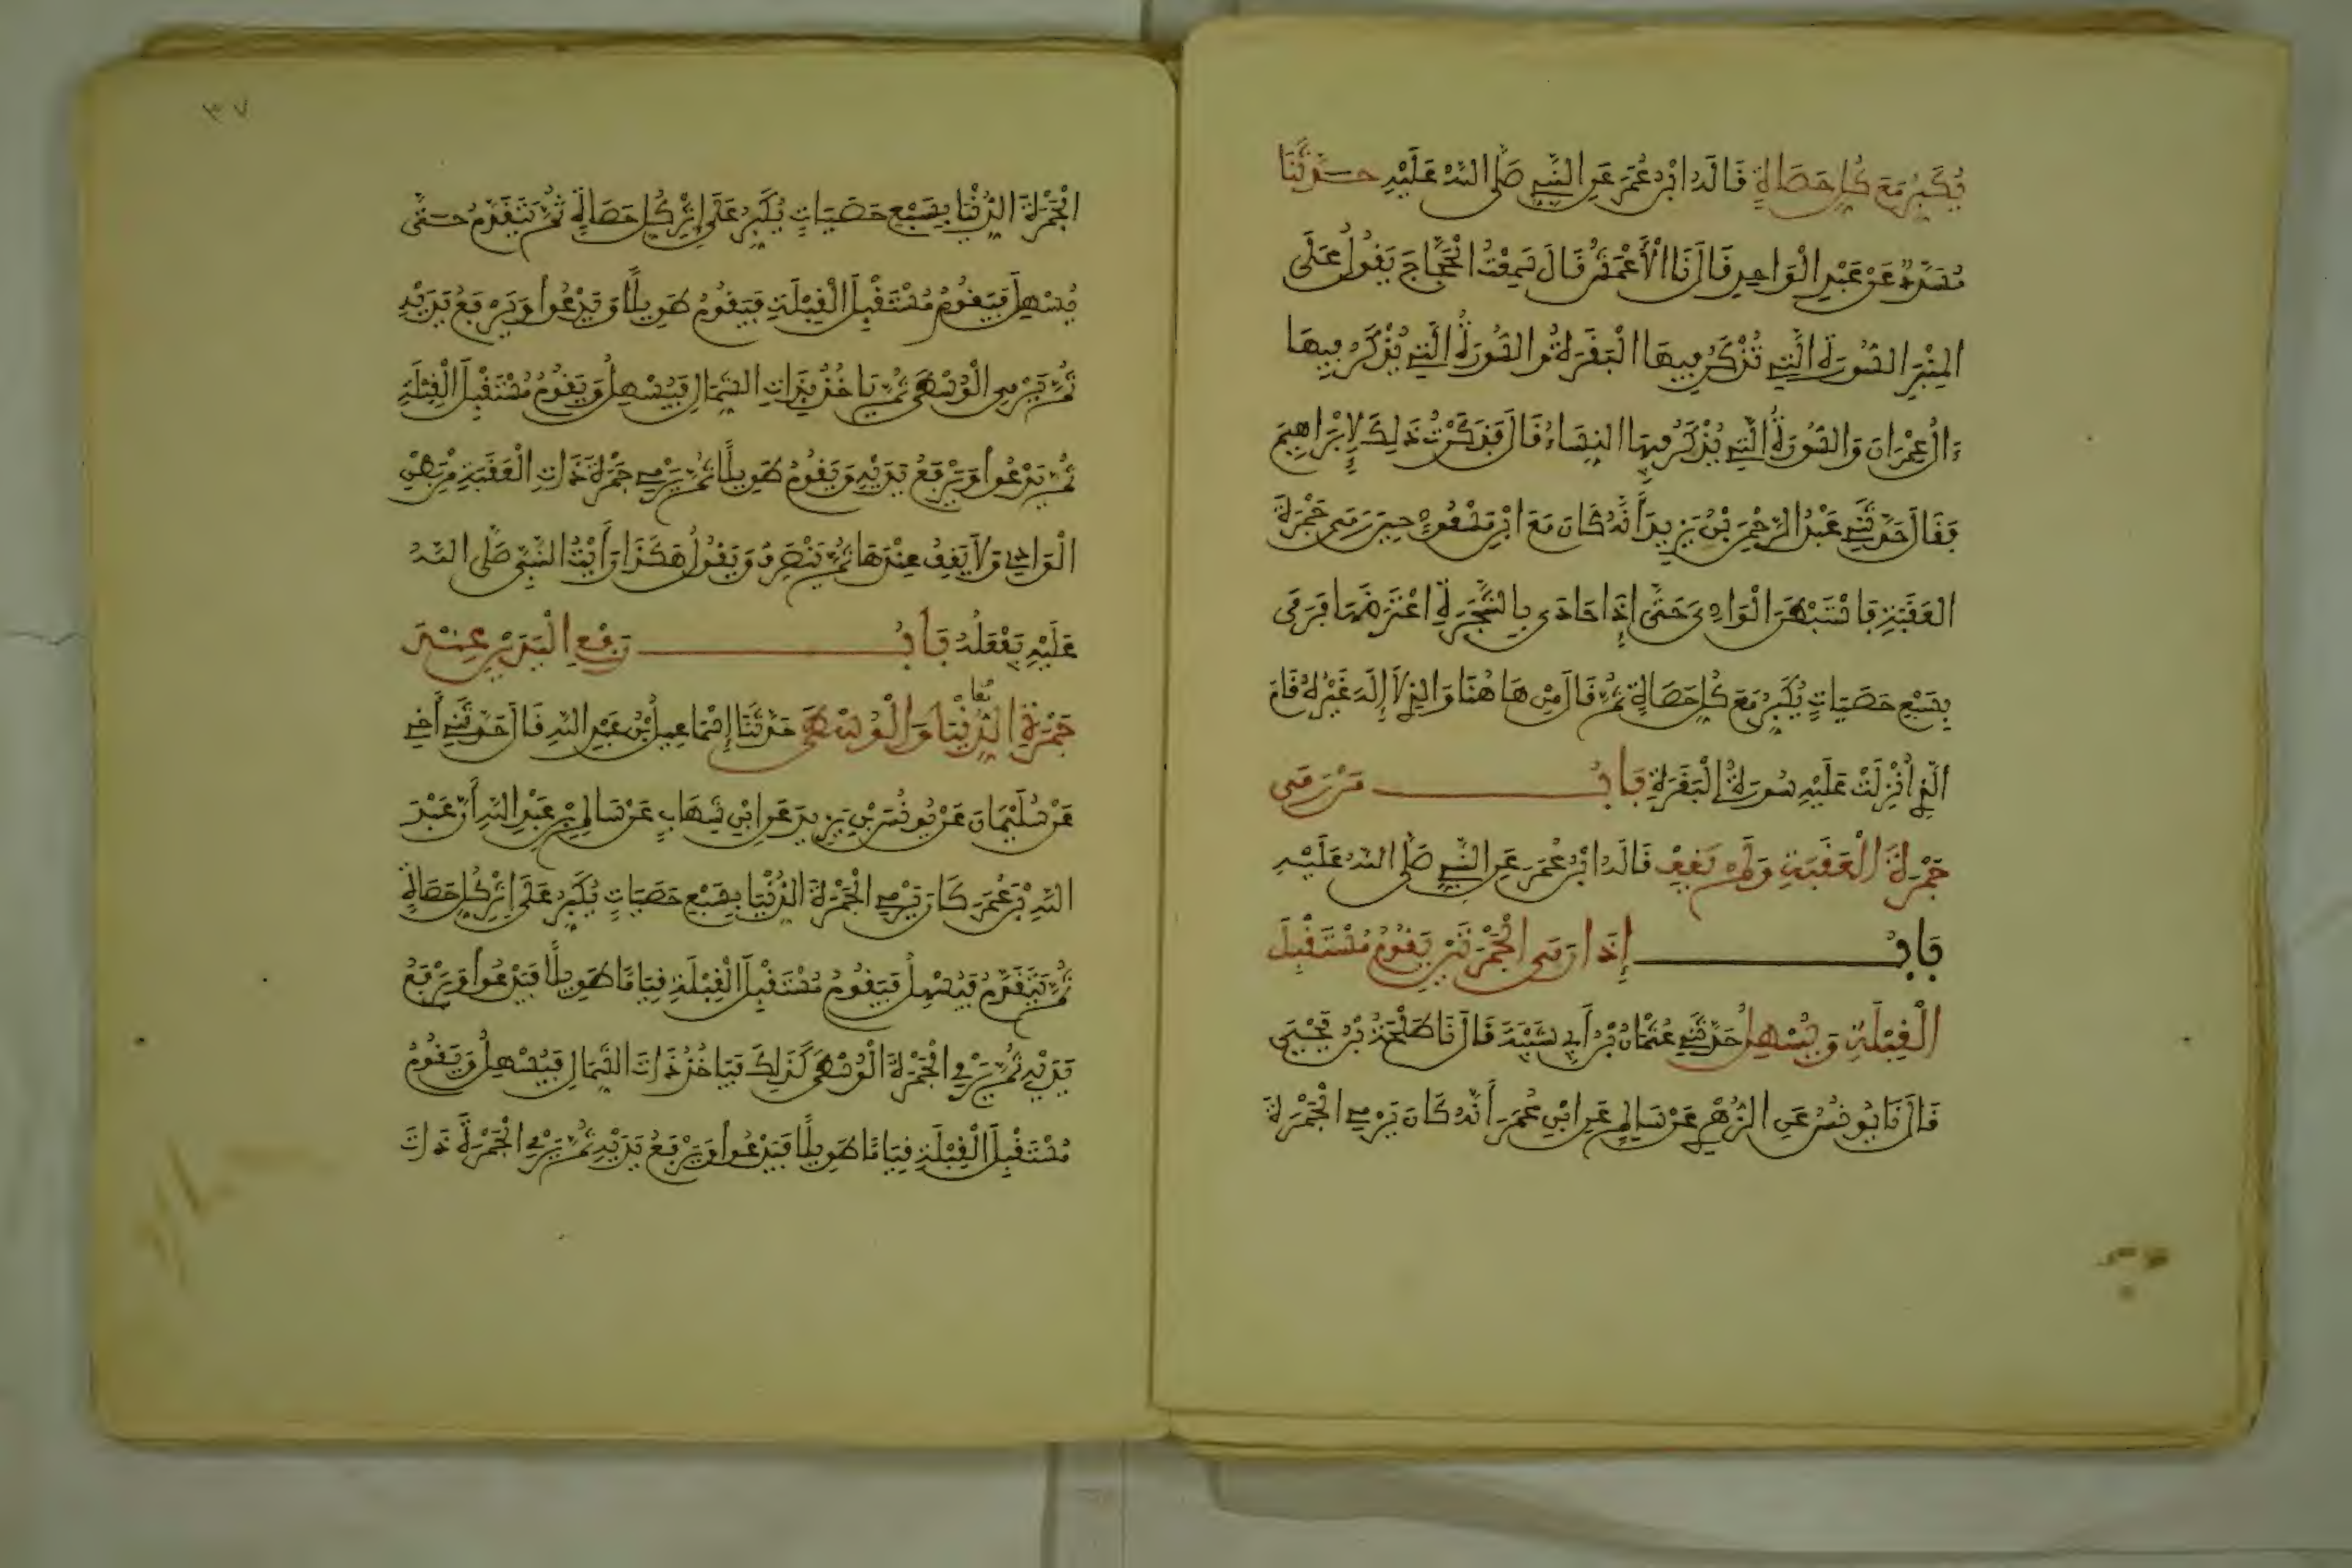 يُكَبِّرُ مَعَ كُلِّ حَصَاةٍ قَالَهُ ابْنُ عُمَرَ عَنِ النَّبِيِّ صَلَّى اللَّهُ عَلَيْهِ حَدَّثَنَا
مُسَدَّدٌ عَنْ عَبْدِ الْوَاحِدِ قَالَ نَا الْأَعْمَشُ قَالَ سَمِعْتُ الْحَجَّاجَ يَقُولُ عَلَى
الْمِنْبَرِ السُّورَةُ الَّتِي تُذْكَرُ فِيهَا الْبَقَرَةُ وَالسُّورَةُ الَّتِي يُذْكَرُ فِيهَا
ءَالُ عِمْرَانَ وَالسُّورَةُ الَّتِي يُذْكَرُ فِيهَا النِّسَاءُ قَالَ فَذَكَرْتُ ذَلِكَ لِإِبْرَاهِيمَ
فَقَالَ حَدَّثَنِي عَبْدُ الرَّحْمَنِ بْنُ يَزِيدَ أَنَّهُ كَانَ مَعَ ابْنِ مَسْعُودٍ حِينَ رَمَى جَمْرَةَ
الْعَقَبَةِ فَاسْتَبْطَنَ الْوَادِيَ حَتَّى إِذَا حَاذَى بِالشَّجَرَةِ اعْتَرَضَهَا فَرَمَى
بِسَبْعِ حَصَيَاتٍ يُكَبِّرُ مَعَ كُلِّ حَصَاةٍ ثُمَّ قَالَ مِنْ هَاهُنَا وَالَّذِي لَا إِلَهَ غَيْرُهُ قَامَ
الَّذِي أُنْزِلَتْ عَلَيْهِ سُورَةُ الْبَقَرَةِ بَابُ مَنْ رَمَى
جَمْرَةَ الْعَقَبَةِ وَلَمْ يَقِفْ قَالَهُ ابْنُ عُمَرَ عَنِ النَّبِيِّ صَلَّى اللَّهُ عَلَيْهِ
بَابُ إِذَا رَمَى الْجَمْرَتَيْنِ يَقُومُ مُسْتَقْبِلَ
الْقِبْلَةِ وَيُسْهِلُ حَدَّثَنِي عُثْمَانُ بْنُ أَبِي شَيْبَةَ قَالَ نَا طَلْحَةُ بْنُ يَحْيَى
قَالَ نَا يُونُسُ عَنِ الزُّهْرِيِّ عَنْ سَالِمٍ عَنِ ابْنِ عُمَرَ أَنَّهُ كَانَ يَرْمِي الْجَمْرَةَ
٣٧
الْجَمْرَةَ الدُّنْيَا بِسَبْعِ حَصَيَاتٍ يُكَبِّرُ عَلَى إِثْرِ كُلِّ حَصَاةٍ ثُمَّ يَتَقَدَّمُ حَتَّى
يُسْهِلَ فَيَقُومُ مُسْتَقْبِلَ الْقِبْلَةِ فَيَقُومُ طَوِيلًا وَيَدْعُوا وَيَرْفَعُ يَدَيْهِ
ثُمَّ يَرْمِي الْوُسْطَى ثُمَّ يَاخُذُ بِذَاتِ الشِّمَالِ فَيُسْهِلُ وَيَقُومُ مُسْتَقْبِلَ الْقِبْلَةِ
ثُمَّ يَدْعُوا وَيَرْفَعُ يَدَيْهِ وَيَقُومُ طَوِيلًا ثُمَّ يَرْمِي جَمْرَةَ ذَاتِ الْعَقَبَةِ مِنْ بَطْنِ
الْوَادِي وَلَا يَقِفُ عِنْدَهَا ثُمَّ يَنْصَرِفُ وَيَقُولُ هَكَذَا رَأَيْتُ النَّبِيَّ صَلَّى اللَّهُ
عَلَيْهِ يَفْعَلُهُ بَابُ رَفْعِ الْيَدَيْنِ عِنْدَ
جَمْرَةِ الدُّنْيَا وَالْوُسْطَى حَدَّثَنَا إِسْمَاعِيلُ بْنُ عَبْدِ اللَّهِ قَالَ حَدَّثَنِي أَخِي
عَنْ سُلَيْمَانَ عَنْ يُونُسَ بْنِ يَزِيدَ عَنِ ابْنِ شِهَابٍ عَنْ سَالِمِ بْنِ عَبْدِ اللَّهِ أَنَّ عَبْدَ
اللَّهِ بْنَ عُمَرَ كَانَ يَرْمِي الْجَمْرَةَ الدُّنْيَا بِسَبْعِ حَصَيَاتٍ يُكَبِّرُ عَلَى إِثْرِ كُلِّ حَصَاةٍ
ثُمَّ يَتَقَدَّمُ فَيُسْهِلُ فَيَقُومُ مُسْتَقْبِلَ الْقِبْلَةِ قِيَامًا طَوِيلًا فَيَدْعُوا وَيَرْفَعُ
يَدَيْهِ ثُمَّ يَرْمِي الْجَمْرَةَ الْوُسْطَى كَذَلِكَ فَيَاخُذُ ذَاتَ الشِّمَالِ فَيُسْهِلُ وَيَقُومُ
مُسْتَقْبِلَ الْقِبْلَةِ قِيَامًا طَوِيلًا فَيَدْعُوا وَيَرْفَعُ يَدَيْهِ ثُمَّ يَرْمِي الْجَمْرَةَ ذَاتَ